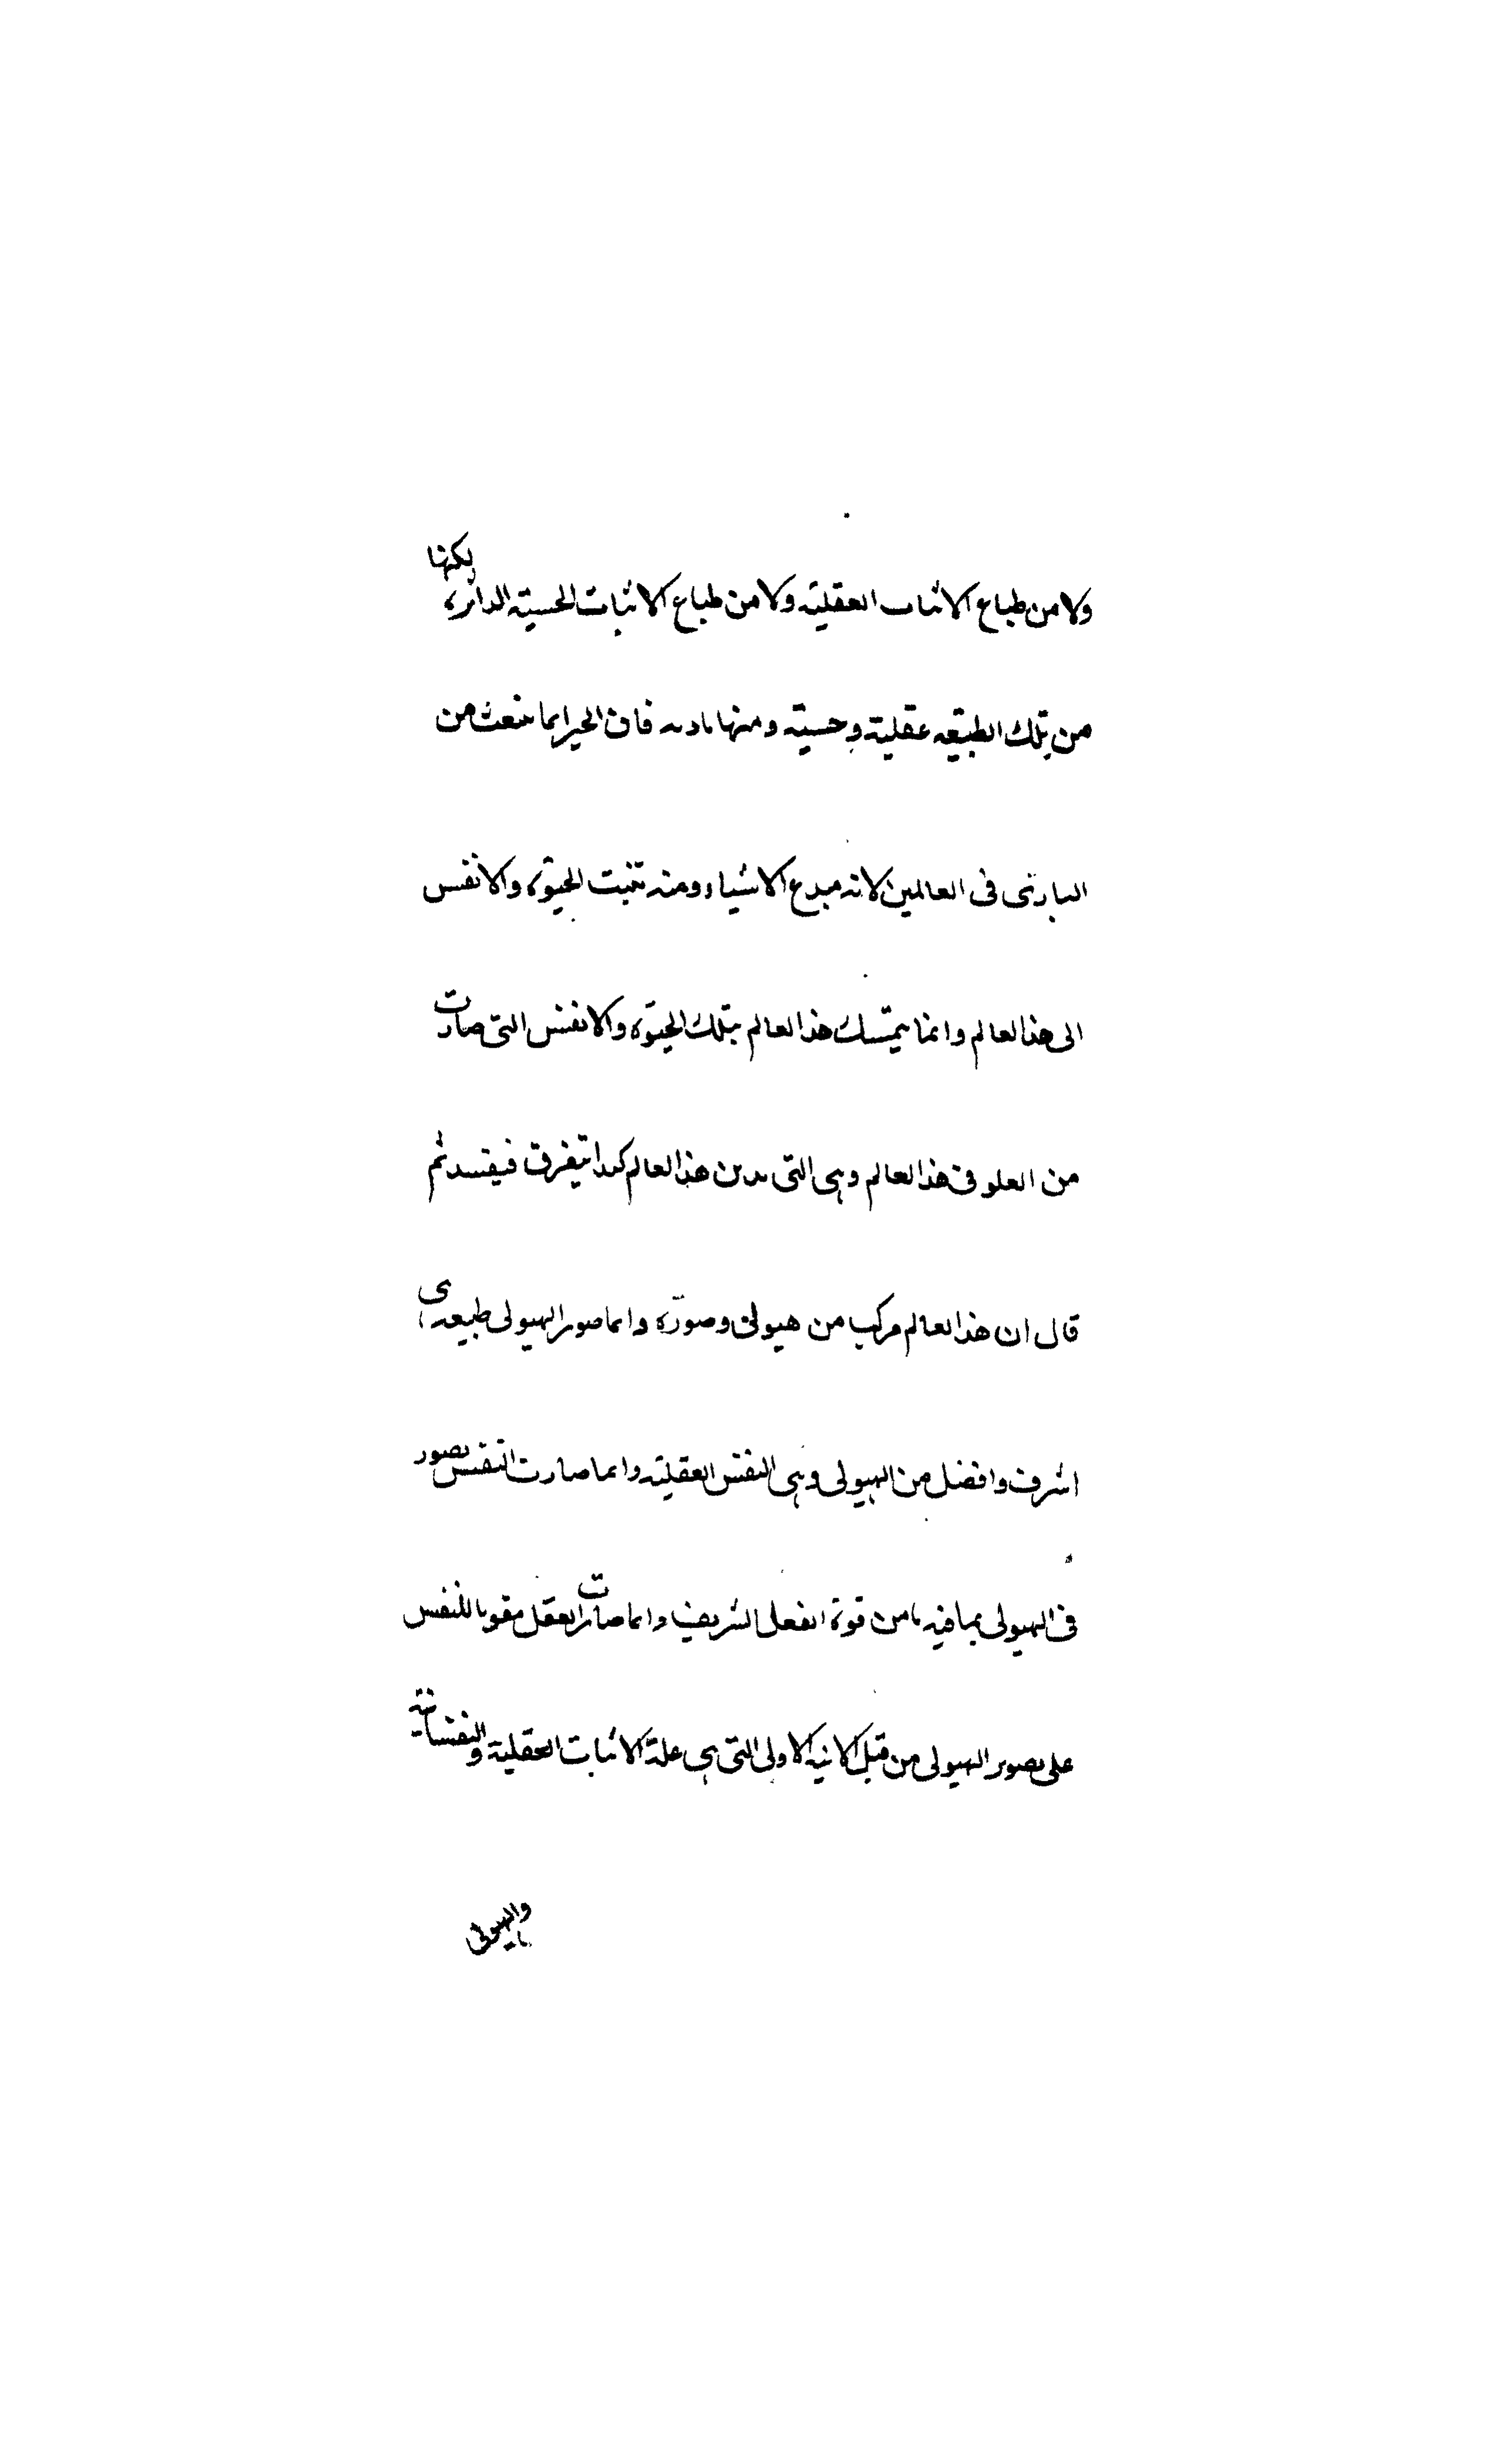 ولا من طباع الانيات العقلية ولا من طباع الانيات الحسية الدائرة لكنها
من تلك الطبيعه عقلية وحسية ومنها بادية فان الخير انما ينبعث من
البارى فى العالمين لانه مبدع الاشياء ومنه تنبت الحيوة والانفس
الى هذا العالم وانما يتمسك هذا العالم بتلك الحيوة والانفس التى صارت
من العلو فى هذا العالم وهى التى هذا العالم كيلا يتفرق فيفسد ثم
قال ان هذا العالم مركب من هيولى وصورة وانما صور الهيولى طبيعة هى
اشرف وافضل من الهيولى وهى النفس العقلية وانما صارت النفس تصور
فى الهيولى بما فيها من قوة الفعل الشريف وانما صار العقل مقويا للنفس
على تصوير الهيولى من قبل الانية الاولى التى هى علة الانيات العقلية والنفسانية
والهيولى